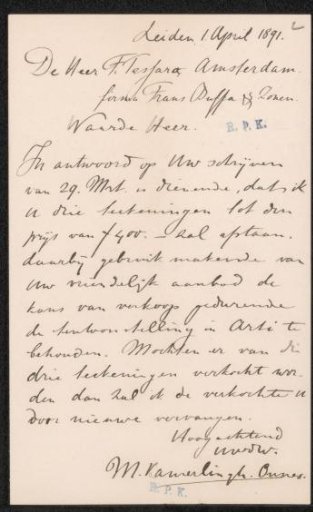 Leiden 1 April 1891.
2
De Heer F. Tessaro Amsterdam.
firma Frans Buffa & Zonen.
Waarde Heer.
R. P. K.
In antwoord op Uw schrijven
van 29. Mrt. is dienende, dat ik
U drie teekeningen tot den
prijs van ƒ 400.- zal afstaan.
daarbij gebruik makende van
Uw vriendelijk aanbod de
kans van verkoop gedurende
de tentoonstelling in Arti te
behouden. Mochten er van die
drie teekeningen verkocht wor-
den dan zal ik de verkochte U
door nieuwe vervangen.
Hoogachtend
uwedw.
M. Kamerlingh. Onnes.
R. P. K.